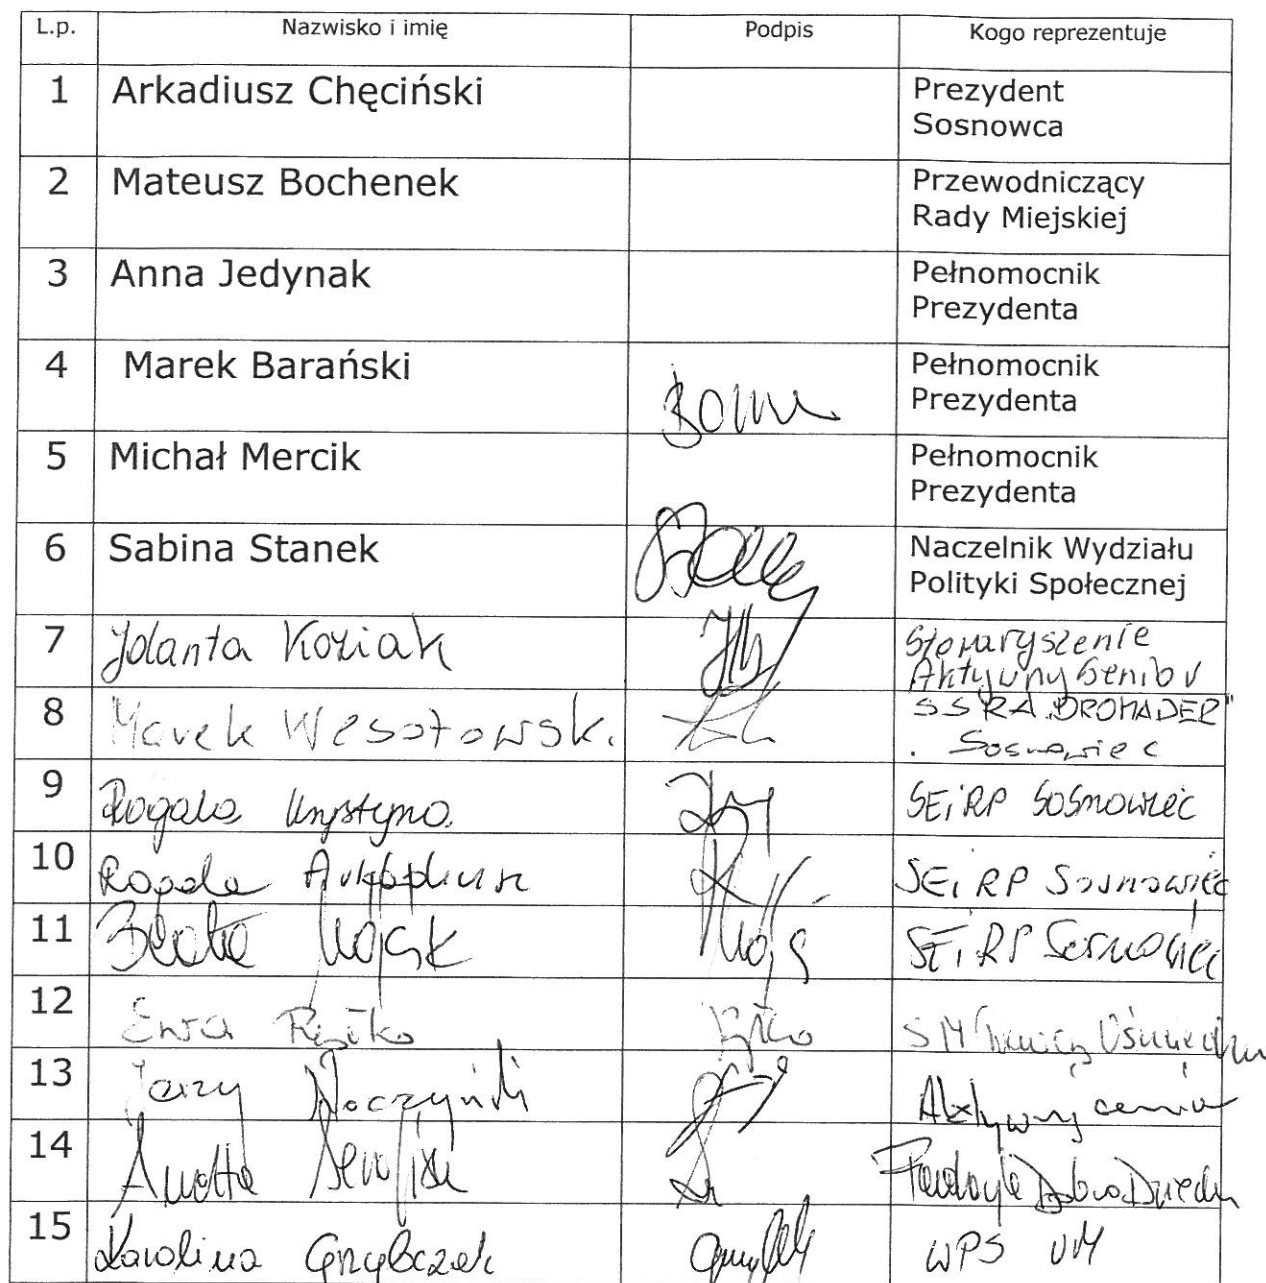 L.p. Nazwisko i imię Podpis Kogo reprezentuje
1 Arkadiusz Chęciński Prezydent
Sosnowca
2 Mateusz Bochenek Przewodniczący
Rady Miejskiej
3 Anna Jedynak Pełnomocnik
Prezydenta
4 Marek Barański Pełnomocnik
Prezydenta
5 Michał Mercik Pełnomocnik
Prezydenta
6 Sabina Stanek Naczelnik Wydziału
Polityki Społecznej
7 Jolanta Koziak Stowaryszenie
Aktywny Senior
8 Marek Wesołowsk. SSRA "DROMADER"
Sosnowiec
9 Rogala Krystyna SEiRP Sosnowiec
10 Rogala Arkadiusz SEiRP Sosnowiec
11 Beata Wójcik SEiRP Sosnowiec
12 Ewa SM
13 Jerzy Aktywny
14 Anetta
15 Karolina Grzybczek WPS UM